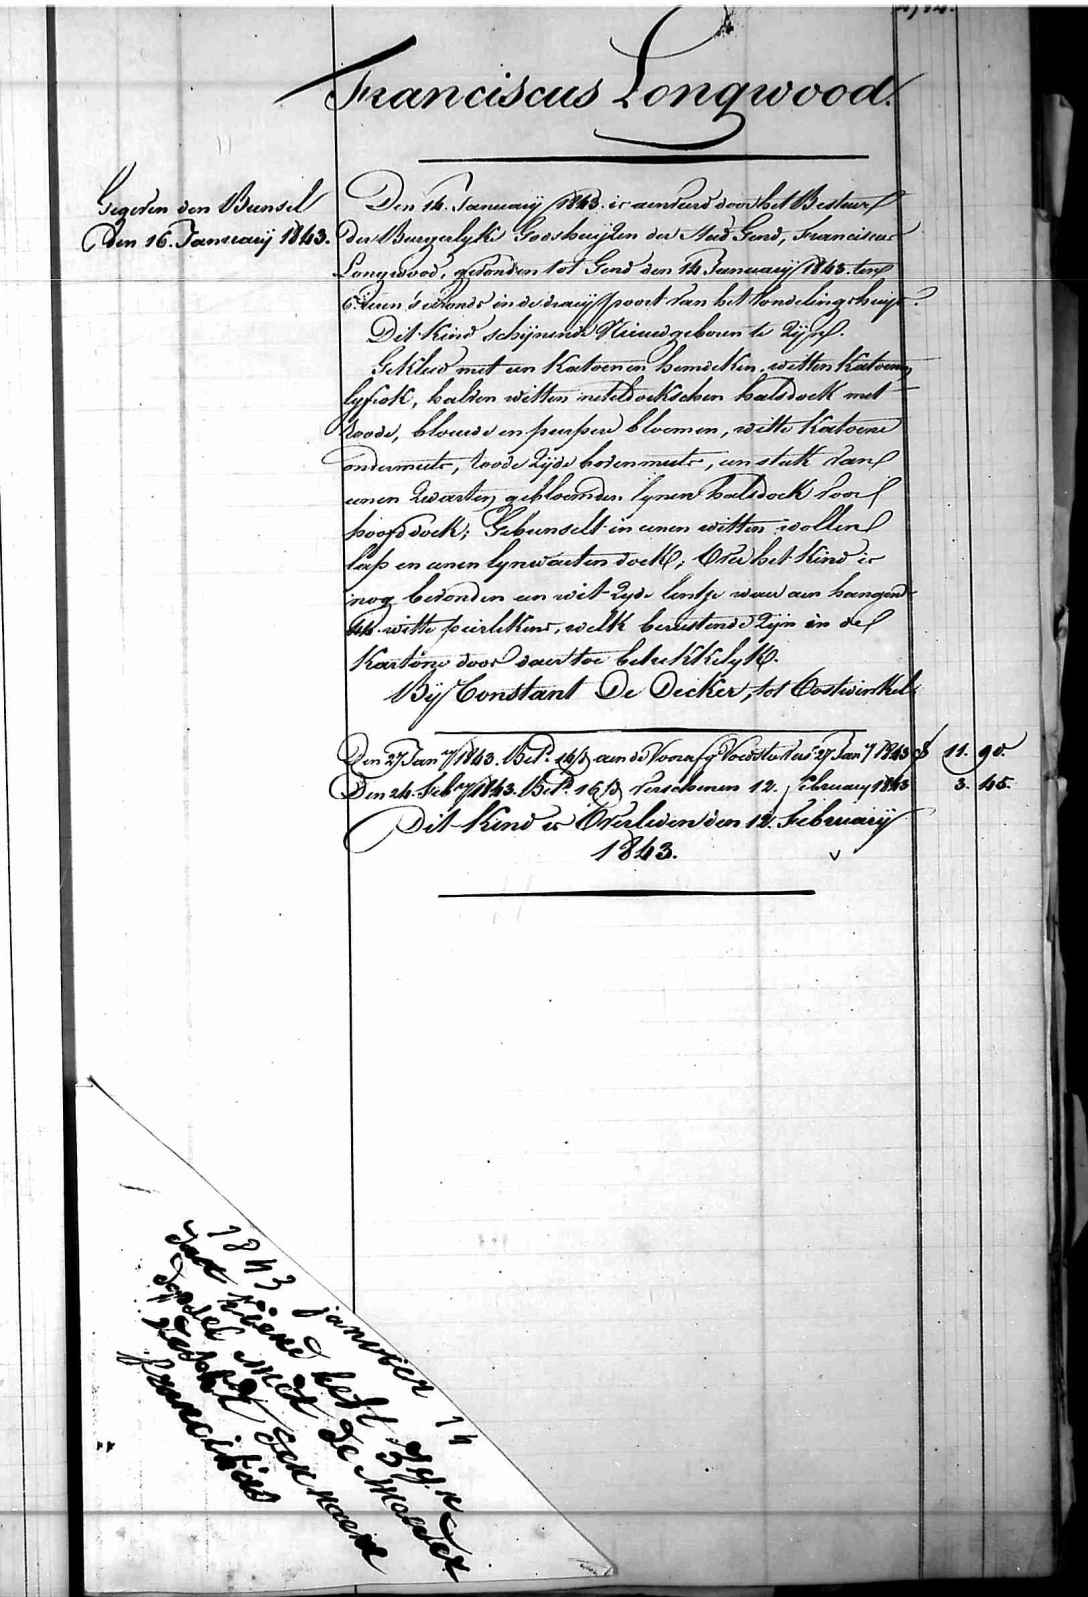 Franciscus Longwood.
Gegeven den Bunsel
den 16. January 1843.
Den 14. January 1843. is aenveird door het Bestuur
der Burgerlyke Godshuijzen der Stad Gend, Franciscus
Longwood, gevonden tot Gend den 14 January 1843. ten
6. uren 's avonds in de draeij poort van het Vondelinghuijs.
Dit Kind schijnende Nieuwgeboren te zijn.
Gekleed met een Katoenen hemdeken, witten Katoenen
lyfrok, halven witten neteldoekschen halsdoek met
roode, blauwe en purpere bloemen, witte Katoene
ondermuts, roode zyde bovenmuts, een stuk van
eenen zwarten gebloemden lynen halsdoek voor
hoofddoek; Gebunselt in eenen witten wollen
lap en eenen lynwaeten doek; Over het Kind is
nog bevonden een wit zyde lentje waer aen hangende
witte peirlekens, welk berustende zyn in de
Kartonne doos daertoe betrekkelyk.
By Constant De Decker, tot Oostwinkel.
Den 27 Jany 1843. Betd. 14 aen de Voedster 27 Jany 1843 11. 90.
Den 24. Feby 1843. Betd. 16 verschenen 12. February 1843 3. 45.
Dit Kind is Overleden den 12. February
1843.
1843 janvier 14
dat kiend heft syne
dopsel met de Moeder
versoekt den naeme
francikus